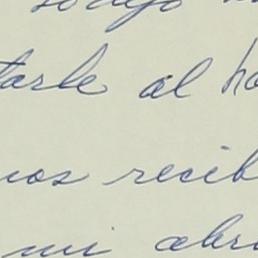 tarle al ha
nos recib
mi abra